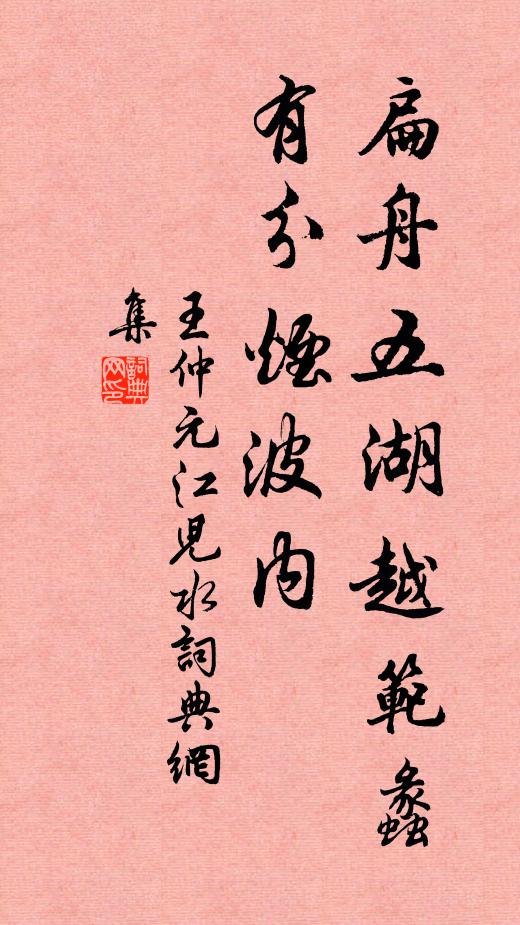 扁舟五湖越範蠡
有分煙波内
王仲元江兒水詞典網
集
詞典
网印